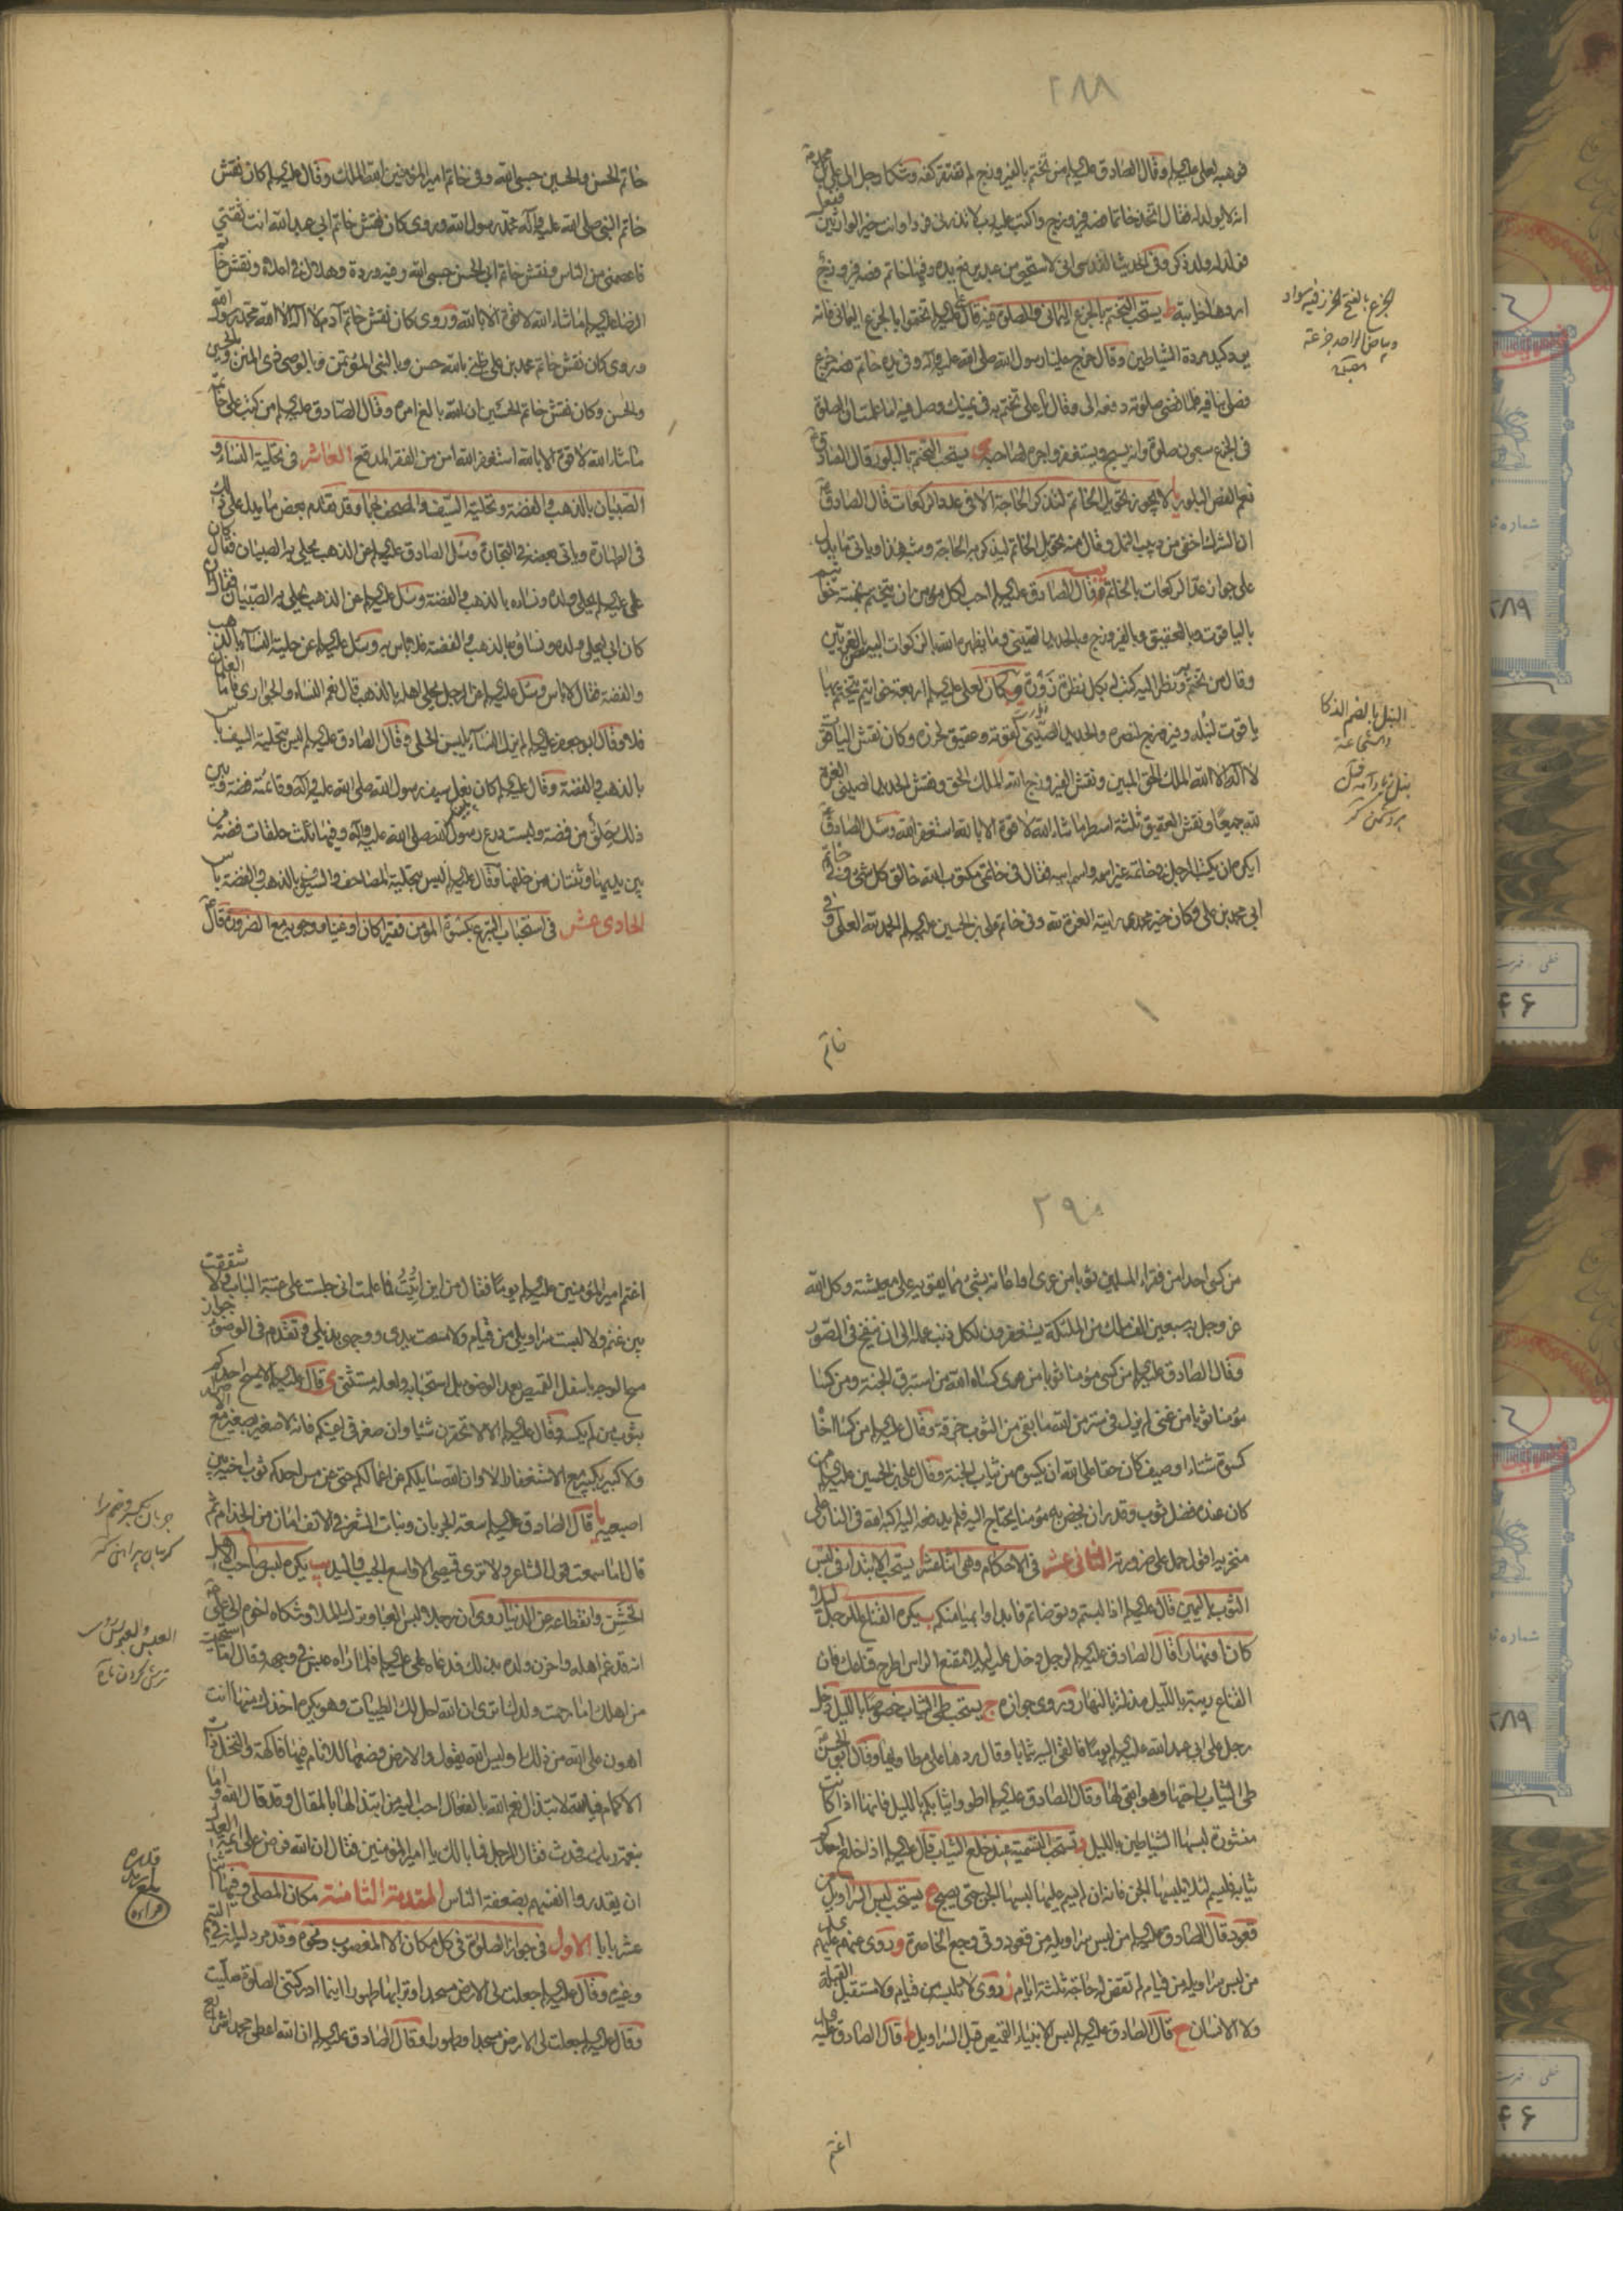 ٢٨٨
فوهبه لعلي عليه السلم وقال الصادق عليه السلم من تختم بالفيروزج لم تفتقر كفه وشكا رجل الى علي بن محمد
انه لا يولد له فقال اتخذ خاتما فصه فيروزج واكتب عليه رب لا تذرني فردا وانت خير الوارثين ففعل
فولد له ولد ذكر وفي الحديث القدسي اني لاستحيي من عبد يرفع يده وفيها خاتم فصه فيروزج
اردها خائبة ط يستحب التختم بالجزع اليماني والصلوة فيه قال علي عليه السلم تختموا بالجزع اليماني فانه
يرد كيد مردة الشياطين وقال خرج علينا رسول الله صلى الله عليه وآله وفي يده خاتم فصه جزع
فصلى بنا فيه فلما قضى صلوته دفعه الي وقال يا علي تختم به في يمينك وصل فيه اما علمت ان الصلوة
في الجزع سبعون صلوة وانه يسبح ويستغفر واجره لصاحبه ى يستحب التختم بالبلور قال الصادق
نعم الفص البلور يا لا يجوز تحويل الخاتم لتذكر الحاجة الا في عدد الركعات قال الصادق
ان الشرك اخفى من دبيب النمل وقال منه تحويل الخاتم ليذكر به الحاجة وشبه هذا وياتي ما يدل
على جواز عد الركعات بالخاتم يب قال الصادق عليه السلم احب لكل مؤمن ان يتختم بخمسة خواتيم
بالياقوت وبالعقيق وبالفيروزج وبالحديد الصيني وما يظهره الله بالذكوات البيض بالغريين
وقال من تختم به ونظر اليه كتب له بكل نظرة زورة يج كان لعلي عليه السلم اربعة خواتيم يتختم بها
ياقوت لنبله وفيروزج لنصره والحديد الصيني لقوته وعقيق لحرزه وكان نقش الياقوت
لا اله الا الله الملك الحق المبين ونقش الفيروزج الله الملك الحق ونقش الحديد الصيني العزة
لله جميعا ونقش العقيق ثلثة اسطر ما شاء الله لا قوة الا بالله استغفر الله وسئل الصادق
ايكره ان يكتب الرجل في خاتمه غير اسمه واسم ابيه فقال في خاتمي مكتوب الله خالق كل شئ وفي خاتم
ابي محمد بن علي وكان خير محمدي رايته العزة لله وفي خاتم علي بن الحسين عليه السلم الحمد لله العلي وفي
خاتم
الجزع بالفتح الخرز فيه سواد
وبياض الواحد جزعة
النبل بالضم الذكا
خاتم الحسن والحسين حسبي الله وفي خاتم امير المؤمنين الله الملك وقال عليه السلم كان نقش
خاتم النبي صلى الله عليه وآله محمد رسول الله وروي كان نقش خاتم ابي عبد الله انت ثقتي
فاعصمني من الناس ونقش خاتم ابي الحسن حسبي الله وفيه وردة وهلال في اعلاه ونقش خاتم
الرضا عليه السلم ما شاء الله لا قوة الا بالله وروي كان نقش خاتم آدم لا اله الا الله محمد رسول الله
وروي كان نقش خاتم محمد بن علي ظني بالله حسن وبالنبي المؤتمن وبالوصي ذي المنن وبالحسين
والحسن وكان نقش خاتم الحسين ان الله بالغ امره وقال الصادق عليه السلم من كتب على خاتمه
ما شاء الله لا قوة الا بالله استغفر الله امن من الفقر المدقع العاشر في تحلية النساء و
الصبيان بالذهب والفضة وتحلية السيف والمصحف بهما وقد تقدم بعض ما يدل على ذلك
في الطهارة وياتي بعضه في التجارة وسئل الصادق عليه السلم عن الذهب يحلى به الصبيان فقال كان
علي عليه السلم يحلي ولده ونساءه بالذهب والفضة وسئل عليه السلم عن الذهب يحلى به الصبيان فقال
كان ابي ليحلي ولده ونساؤه بالذهب والفضة فلا باس به وسئل عليه السلم عن حلية النساء بالذهب
والفضة فقال لا باس وسئل عليه السلم عن الرجل يحلي اهله بالذهب قال نعم النساء والجواري فاما الغلمان
فلا وقال ابو جعفر عليه السلم لم يزل النساء يلبسن الحلي وقال الصادق عليه السلم ليس بتحلية السيف باس
بالذهب والفضة وقال عليه السلم كان نعل سيف رسول الله صلى الله عليه وآله وقائمته فضة وبين
ذلك حلق من فضة ولبست درع رسول الله صلى الله عليه وآله وفيها ثلث حلقات فضة من
بين يديها وثنتان من خلفها وقال عليه السلم ليس بتحلية المصاحف والسيوف بالذهب والفضة باس
الحادي عشر في استحباب التبرع بكسوة المؤمن فقيرا كان او غنيا ووجوبه مع الضرورة قال
٢٩٠
من كسا احدا من فقراء المسلمين ثوبا من عرى او اعانه بشئ مما يقوته على معيشته وكل الله
عز وجل به سبعين الف ملك من الملئكة يستغفرون لكل ذنب عمله الى ان ينفخ في الصور
وقال الصادق عليه السلم من كسى مؤمنا ثوبا من عرى كساه الله من استبرق الجنة ومن كسا
مؤمنا ثوبا من غنى لم يزل في ستر من الله ما بقي من الثوب خرقة وقال عليه السلم من كسا اخاه
كسوة شتاء او صيف كان حقا على الله ان يكسوه من ثياب الجنة وقال علي بن الحسين عليه السلم من
كان عنده فضل ثوب وقدر ان يخص به مؤمنا يحتاج اليه فلم يدفعه اليه اكبه الله في النار على
منخريه اقول حمل على ضرورته الثاني عشر في الاحكام وهي اثنا عشر ا يستحب الابتداء في لبس
الثوب باليمين قال عليه السلم اذا لبستم وتوضاتم فابدأوا بميامنكم ب يكره القناع للرجل ليلا
كان او نهارا قال الصادق عليه السلم لرجل دخل عليه المقنع الراس اطرح قناعك فان
القناع ريبة بالليل مذلة بالنهار وروي جوازه ج يستحب طي الثياب خصوصا بالليل دخل
رجل على ابي عبد الله عليه السلم يوما فالقى اليه ثيابا وقال ردها على مطاويها وقال ابو الحسن
طي الثياب راحتها وهو ابقى لها وقال الصادق عليه السلم اطووا ثيابكم بالليل فانها اذا كانت
منشورة لبسها الشياطين بالليل د تستحب التسمية عند خلع الثياب قال عليه السلم اذا خلع احدكم
ثيابه فليسم لئلا يلبسها الجن فانه ان لم يسم عليها لبسها الجن حتى يصبح ه يستحب لبس السراويل من
قعود قال الصادق عليه السلم من لبس سراويله من قعود وقي وجع الخاصرة و روي عنهم عليهم السلم
من لبس سراويله من قيام لم تقض له حاجة ثلثة ايام ز روي لا تلبسه من قيام ولا مستقبل القبلة
ولا الانسان ح قال الصادق عليه السلم لبس الانبياء القميص قبل السراويل ط قال الصادق عليه
اغتم
اغتم امير المؤمنين عليه السلم يوما فقال من اين اتيت فما علمت اني جلست على عتبة الباب ولا شققت
بين غنم ولا لبست سراويلي من قيام ولا مسحت يدي ووجهي بذيلي وتقدم في الوضوء جواز
مسح الوجه باسفل القميص بعد الوضوء بل استحبابه ولعله مستثنى ى قال عليه السلم لا يمسح احدكم
بثوب من لم يكسه وقال عليه السلم الا لا تحقرن شيئا وان صغر في اعينكم فانه لا صغيرة بصغيرة مع الاصرار
ولا كبيرة بكبيرة مع الاستغفار الا وان الله سايلكم عن اعمالكم حتى عن مس احدكم ثوب اخيه بين
اصبعيه يا قال الصادق عليه السلم سعة الجربان ونبات الشعر في الانف امان من الجذام ثم
قال اما سمعت قول الشاعر ولا ترى قميصي الا واسع الجيب واليد يب يكره لبس صاحب الاهل
الخشن وانقطاعه عن الدنيا روي ان رجلا لبس العبا وترك الملاء وشكاه اخوه الى علي
انه قد غم اهله واحزن ولده بذلك فدعاه علي عليه السلم فلما راه عبس في وجهه وقال اما استحييت
من اهلك اما رحمت ولدك اترى ان الله احل لك الطيبات وهو يكره اخذك منها انت
اهون على الله من ذلك اوليس الله يقول والارض وضعها للانام فيها فاكهة والنخل ذات
الاكمام فبالله لابتذال نعم الله بالفعال احب اليه من ابتذالها بالمقال وقد قال الله واما
بنعمة ربك فحدث فقال الرجل فما بالك يا امير المؤمنين فقال ان الله فرض على ائمة العدل
ان يقدروا انفسهم بضعفة الناس المقدمة الثامنة مكان المصلي وفيها اثنا
عشر بابا الاول في جواز الصلوة في كل مكان الا المغصوب ونحوه وقد مر دليله في التيمم
وغيره وقال عليه السلم جعلت لي الارض مسجدا وترابها طهورا اينما ادركتني الصلوة صليت
وقال عليه السلم جعلت لي الارض مسجدا وطهورا وقال الصادق عليه السلم ان الله اعطى محمدا شرايع